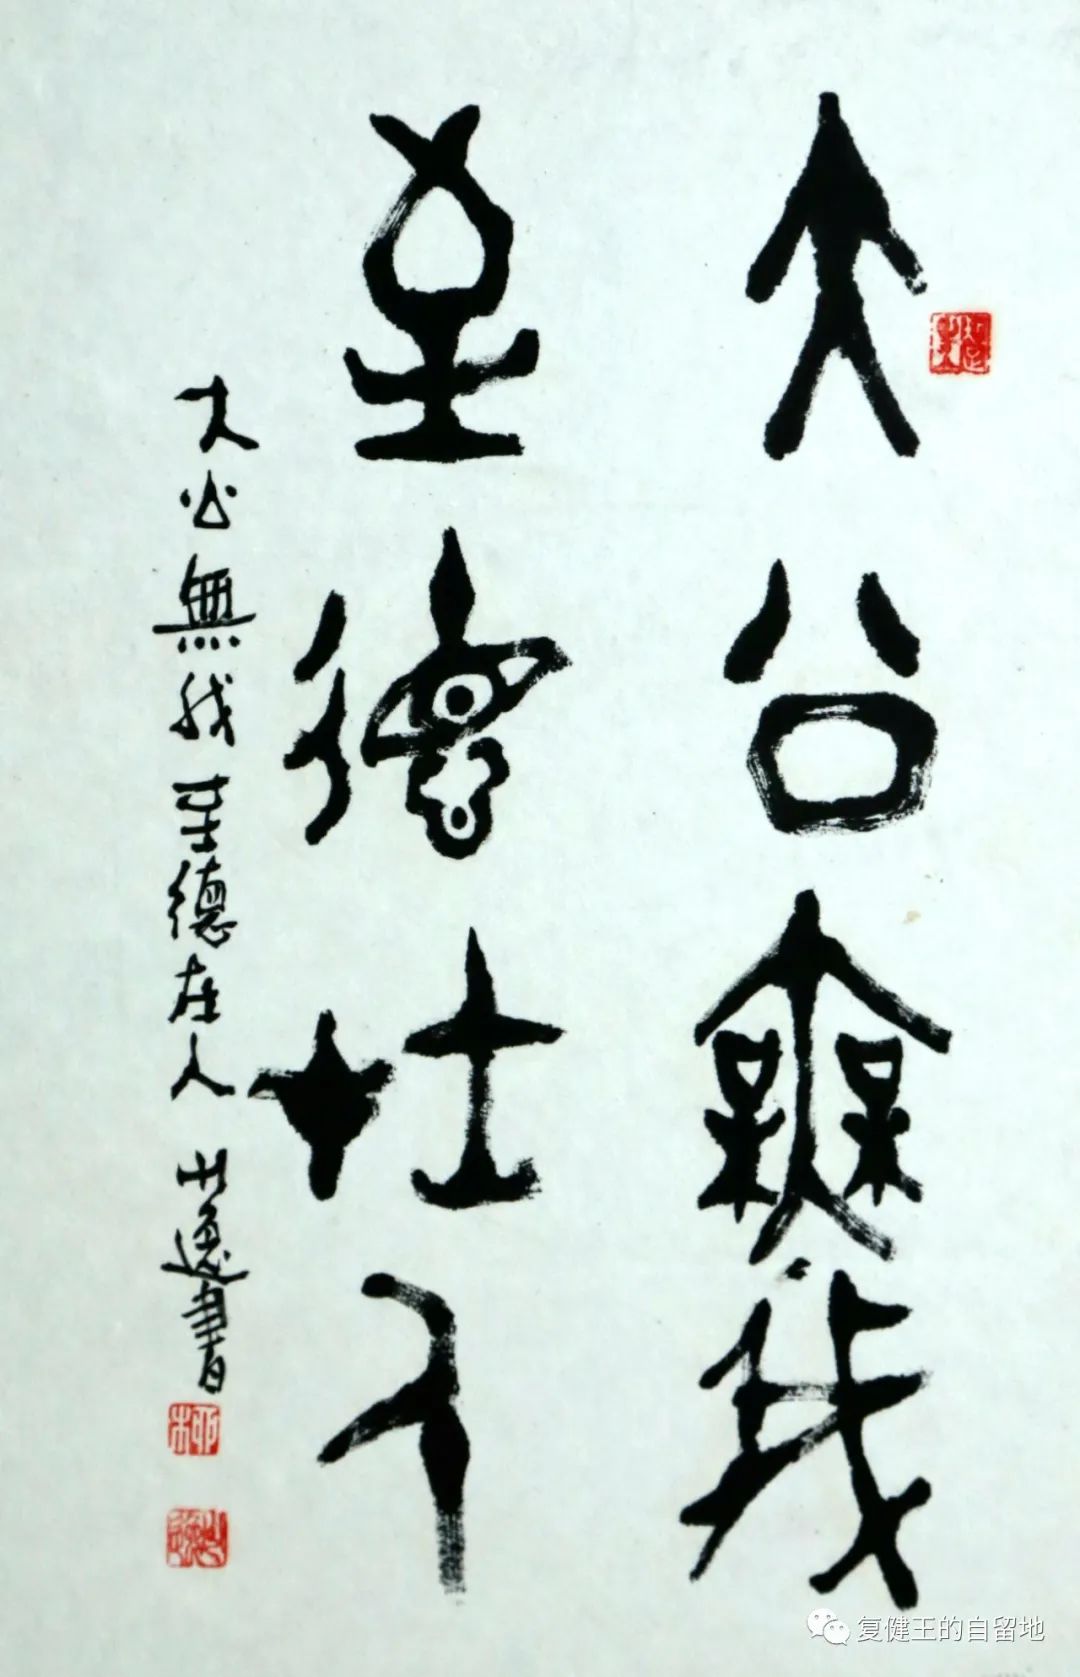 大公無我
至德在人
大公無我至德在人 山逸書
复健王的自留地